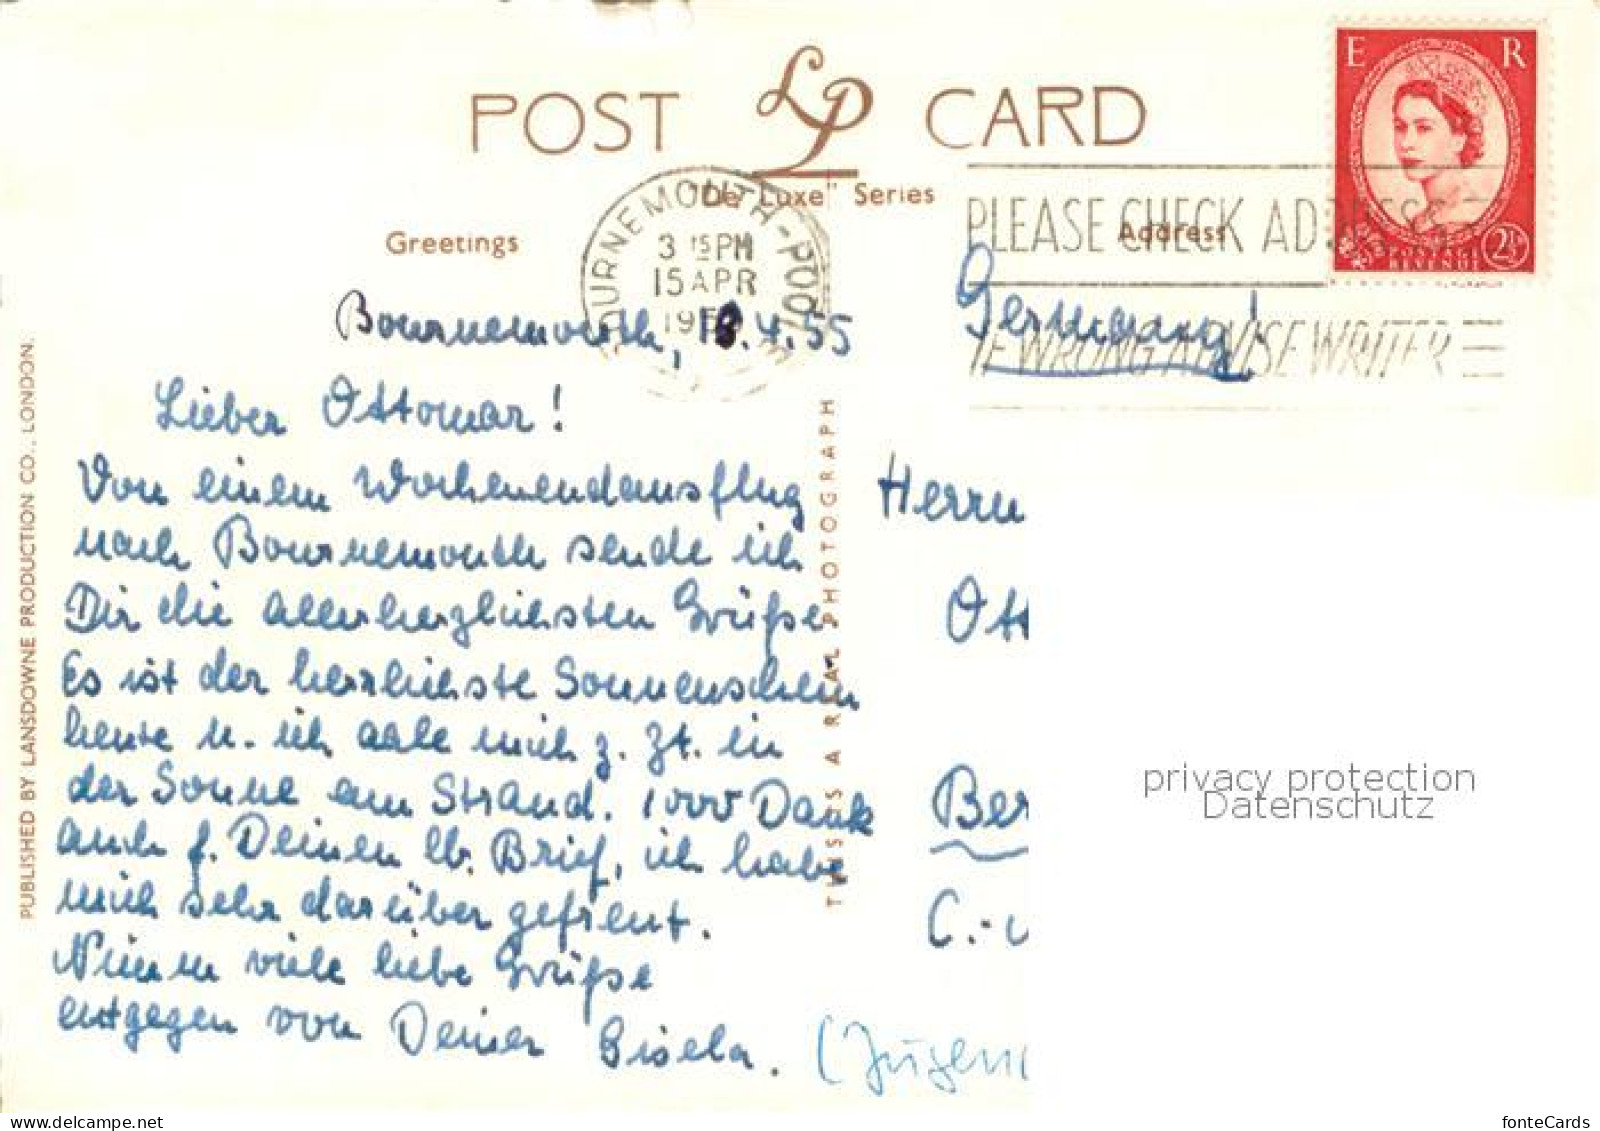 POST LP CARD
"De Luxe" Series
Greetings
Address
BOURNEMOUTH-POOLE
3 15 PM
15 APR
PLEASE CHECK ADDRESS
IF WRONG ADVISE WRITER
E R
POSTAGE
REVENUE
2½
Bournemouth, 4.55
Germany!
Lieber Ottomar!
Von einem Wochenendausflug
nach Bournemouth sende ich
Dir die allerherzlichsten Grüße.
Es ist der herrlichste Sonnenschein
heute u. ich aale mich z. Zt. in
der Sonne am Strand. 1000 Dank
auch f. Deinen lb. Brief, ich habe
mich sehr darüber gefreut.
Nimm viele liebe Grüße
entgegen von Deiner Gisela.
Herrn
Ott
Ber
C.-
(Jugen
PUBLISHED BY LANSDOWNE PRODUCTION CO., LONDON.
THIS IS A REAL PHOTOGRAPH
privacy protection
Datenschutz
fonteCards